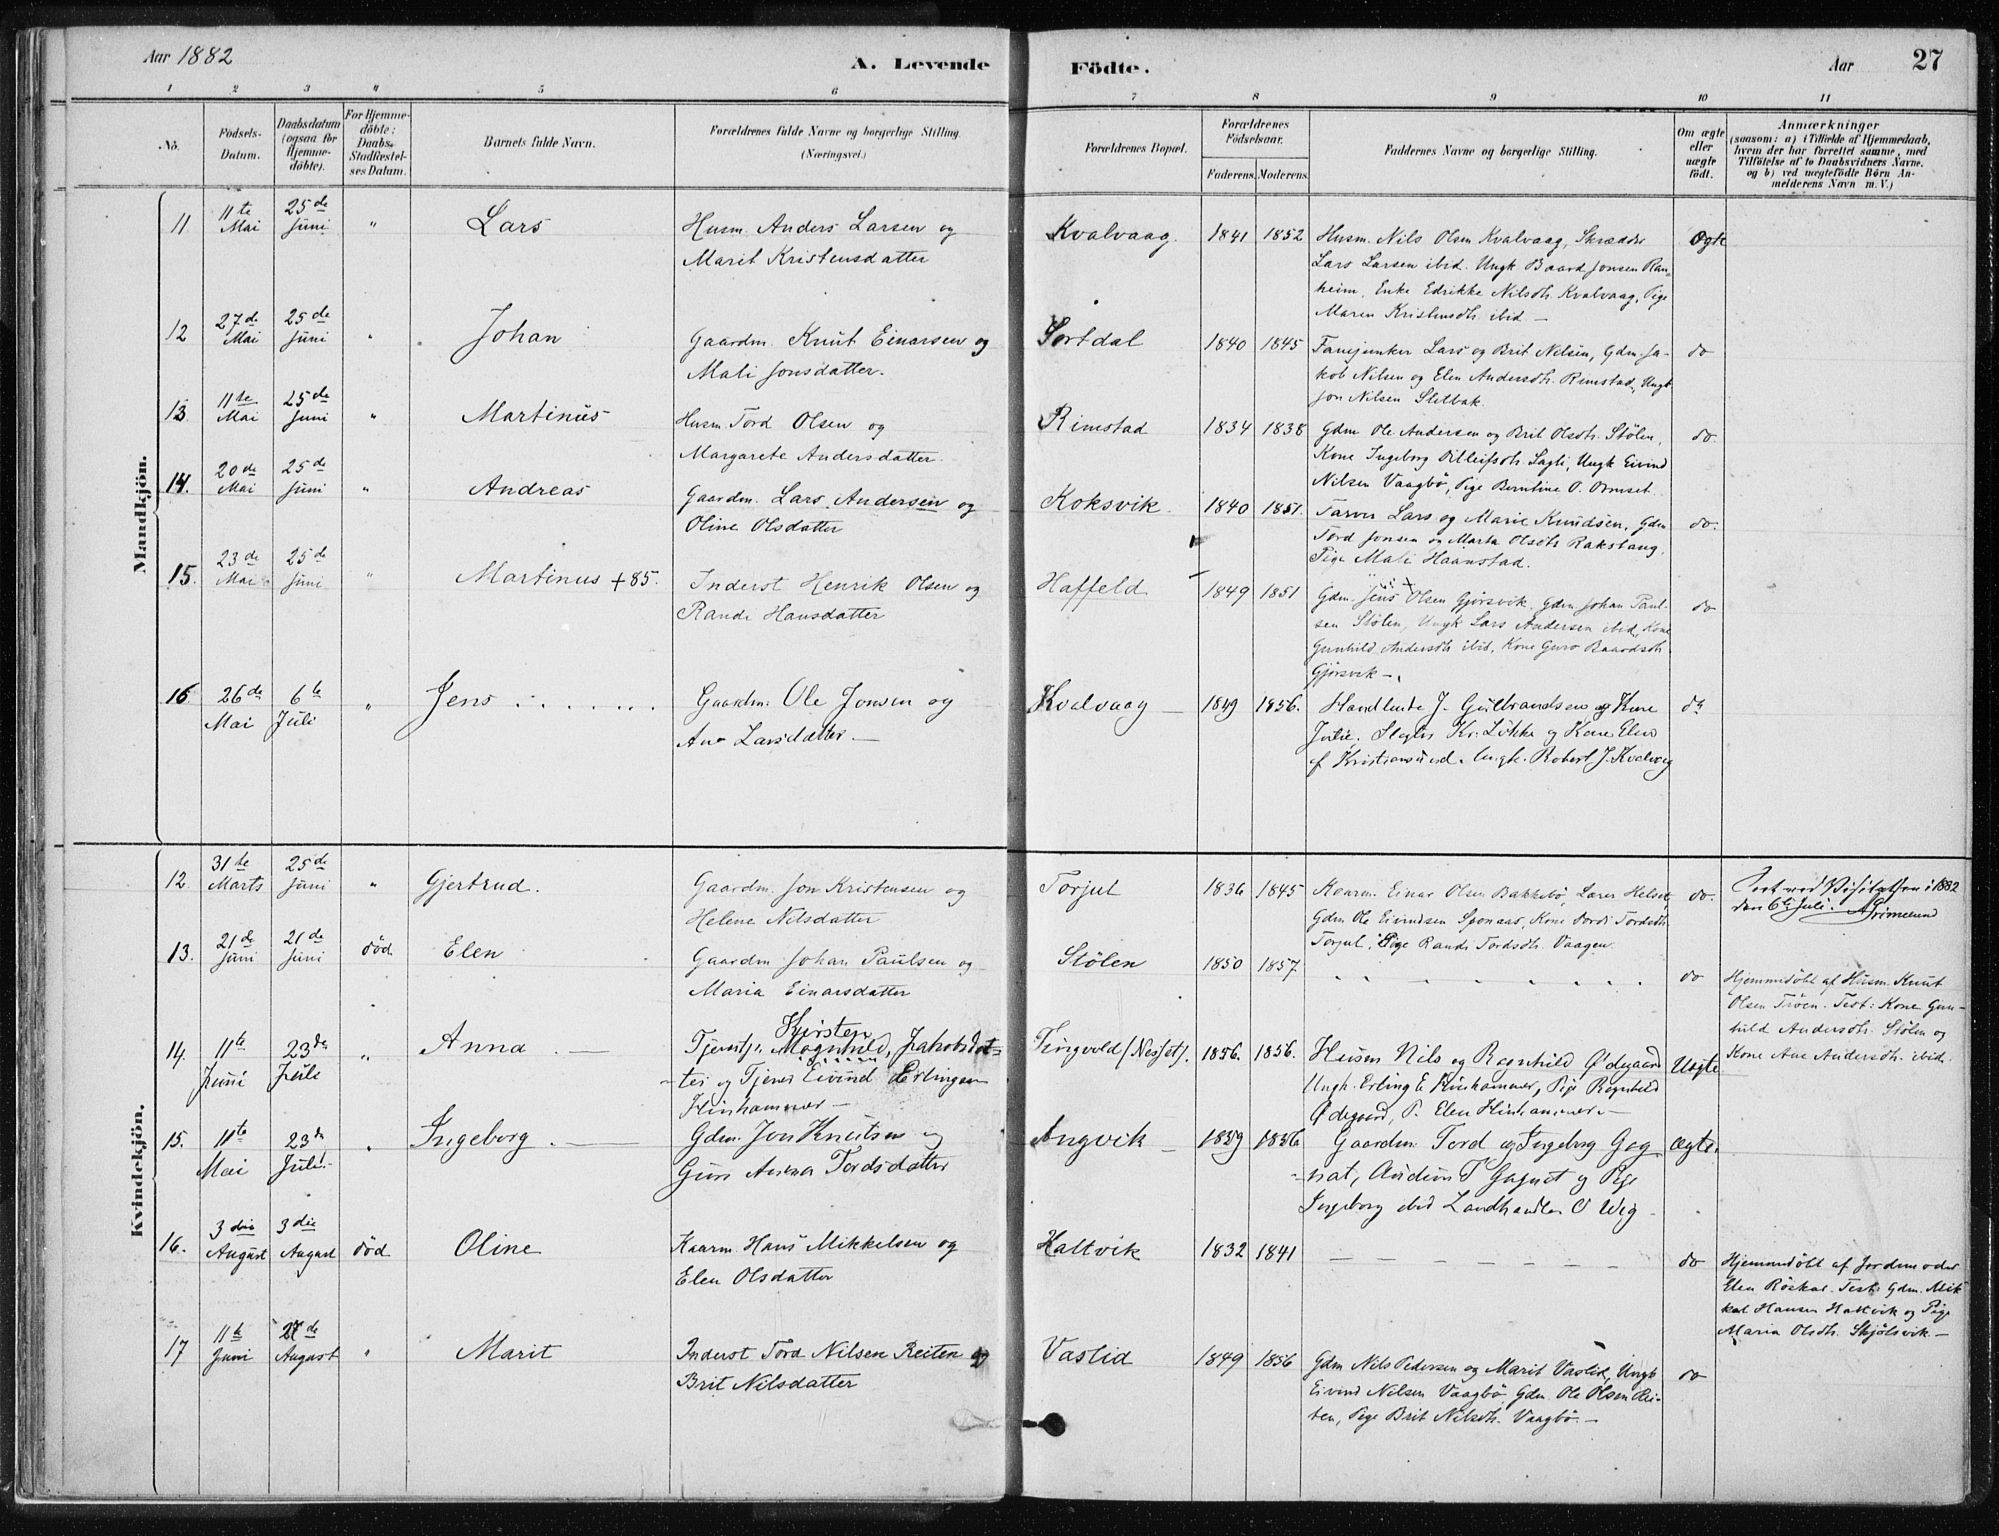 Aar 1882
A. Levende
Födte.
Aar
27
1 2 3 4 5 6 7 8 9 10 11
No.
Födsels-
Datum.
Daabsdatum
(ogsaa for
Hjemme-
döbte).
For Hjemme-
döbte;
Daabs-
Stadfestel-
ses Datum.
Barnets fulde Navn.
Forældrenes fulde Navne og borgerlige Stilling.
(Næringsvei.)
Forældrenes Bopæl.
Forældrenes
Födselsaar.
Faderens. Moderens.
Faddernes Navne og borgerlige Stilling.
Om ægte
eller
uægte
født.
Anmærkninger
(saasom: a) i Tilfælde af Hjemmedaab,
hvem der har forrettet samme, med
Tilföielse af to Daabsvidners Navne,
og b) ved uægtefödte Börn An-
melderens Navn m. V.)
Mandkjön.
11 11te Mai 25de Juni " Lars
Husm. Anders Larsen og
Marit Kristensdatter
Kvalvaag. 1841 1852
Husm. Nils Olsen Kvalvaag, Skrædder
Lars Larsen ibid. Ungk Baard Jonsen Ran-
heim, Enke Edrikke Nilsdtr. Kvalvaag, Pige
Maren Kristensdtr. ibid —
Ægte
12 27de Mai 25de Juni " Johan
Gaardm. Knut Einarsen og
Mali Jonsdatter.
Sortdal 1840 1845
Fanejunker Lars og Brit Nilsen, Gdm. Ja-
kob Nilsen og Elen Andersdtr. Rimstad, Ungk
Jon Nilsen Sletbak.
do
13 11te Mai 25de Juni " Martinus
Husm. Tord Olsen og
Margarete Andersdatter.
Rimstad 1834 1838
Gdm Ole Andersen og Brit Olsdtr. Stølen,
Kone Ingeborg Sagli, Ungk Eivind
Nilsen Vaagbø, Pige Berntine O. Ormset.
do
14. 20de Mai 25de Juni " Andreas
Gaardm. Lars Andersen og
Oline Olsdatter
Koksvik. 1840 1851.
Farver Lars og Marie Knudsen, Gdm
Tord Jonsen og Marta Olsdtr Rakstang.
Pige Mali Haanstad.
do.
15. 23de Mai 25de Juni " Martinus +85.
Inderst Henrik Olsen og
Rande Hansdatter
Haffeld 1849 1851
Gdm. Jens Olsen Gjørsvik. Gdm Johan Paul-
sen Stølen, Ungk Lars Andersen ibid, Kone
Gunhild Andersdtr ibid, Kone Guro Baardsdtr.
Gjørsvik —.
do
16 26de Mai 6te Juli " Jens
Gaardm: Ole Jonsen og
Ane Larsdatter —
Kvalvaag 1849 1856.
J. Gulbrandsen og Kone
Julie. Kr: Løkke og Kone Elen
af Kristiansund. Ungk. Robert J. Kvalvaag
do
Kvindekjön.
12 31te Marts 25de Juni " Gjertrud.
Gaardm. Jon Kristensen og
Helene Nilsdatter
Torjul 1836 1845
Kaarm. Einar Olsen Bakkebø, Lærer Helset,
Gdm Ole Eivindsen Sponaas, Kone Dordi Tordsdtr.
Torjul, Pige Randi Tordsdtr. Vaagen.
do.
Seet ved Visitatsen i 1882
den 6te Juli. Grimelund
13. 21de Juni 21de Juni død Elen
Gaardm Johan Paulsen og
Maria Einarsdatter
Stølen 1850 1857.
do
Hjemmedøbt af Husm. Knut
Olsen Trøen. Test: Kone Gun-
hild Andersdtr. Stølen og
Kone Ane Andersdtr. ibid.
14. 11te Juni 23de Juli " Anna
Kirsten
Tjenstp. Magnhild, Jakobsdat-
ter og Tjener Eivind Erlingsen
Hinhammer —
Tingvold (Nesset). 1856. 1856.
Husm Nils og Ragnhild Ødegaard
Ungk. Erling E. Hinhammer, Pige Ragnhild
Ødegaard, P. Elen Hinhammer. —
Uægte
15. 11te Mai 23de Juli. " Ingeborg
Gdm. Jon Knutsen og
Guro Anna Tordsdatter
Angvik 1859 1856
Gaardm. Tord og Ingeborg Gag-
nat, Audun T Gagnat og Pige
Ingeborg ibid Landhandler O Wig
Ægte.
16. 3die August 3die August død Oline
Kaarm. Hans Mikkelsen og
Elen Olsdatter
Hattvik 1832 1841
do
Hjemmedøbt af Jordemoder
Elen Røskar. Test: Gdm. Mik-
kel Hansen Hattvik og Pige
Maria Olsdtr. Skjølsvik. —
17 11te Juni 27de August " Marit
Inderst Tord Nilsen Reiten og
Brit Nilsdatter
Vaslid 1849 1856
Gdm Nils Pedersen og Marit Vaslid, Ungk
Eivind Nilsen Vaagbø, Gdm Ole Olsen Rei-
ten, Pige Brit Nilsdtr. Vaagbø. —
do